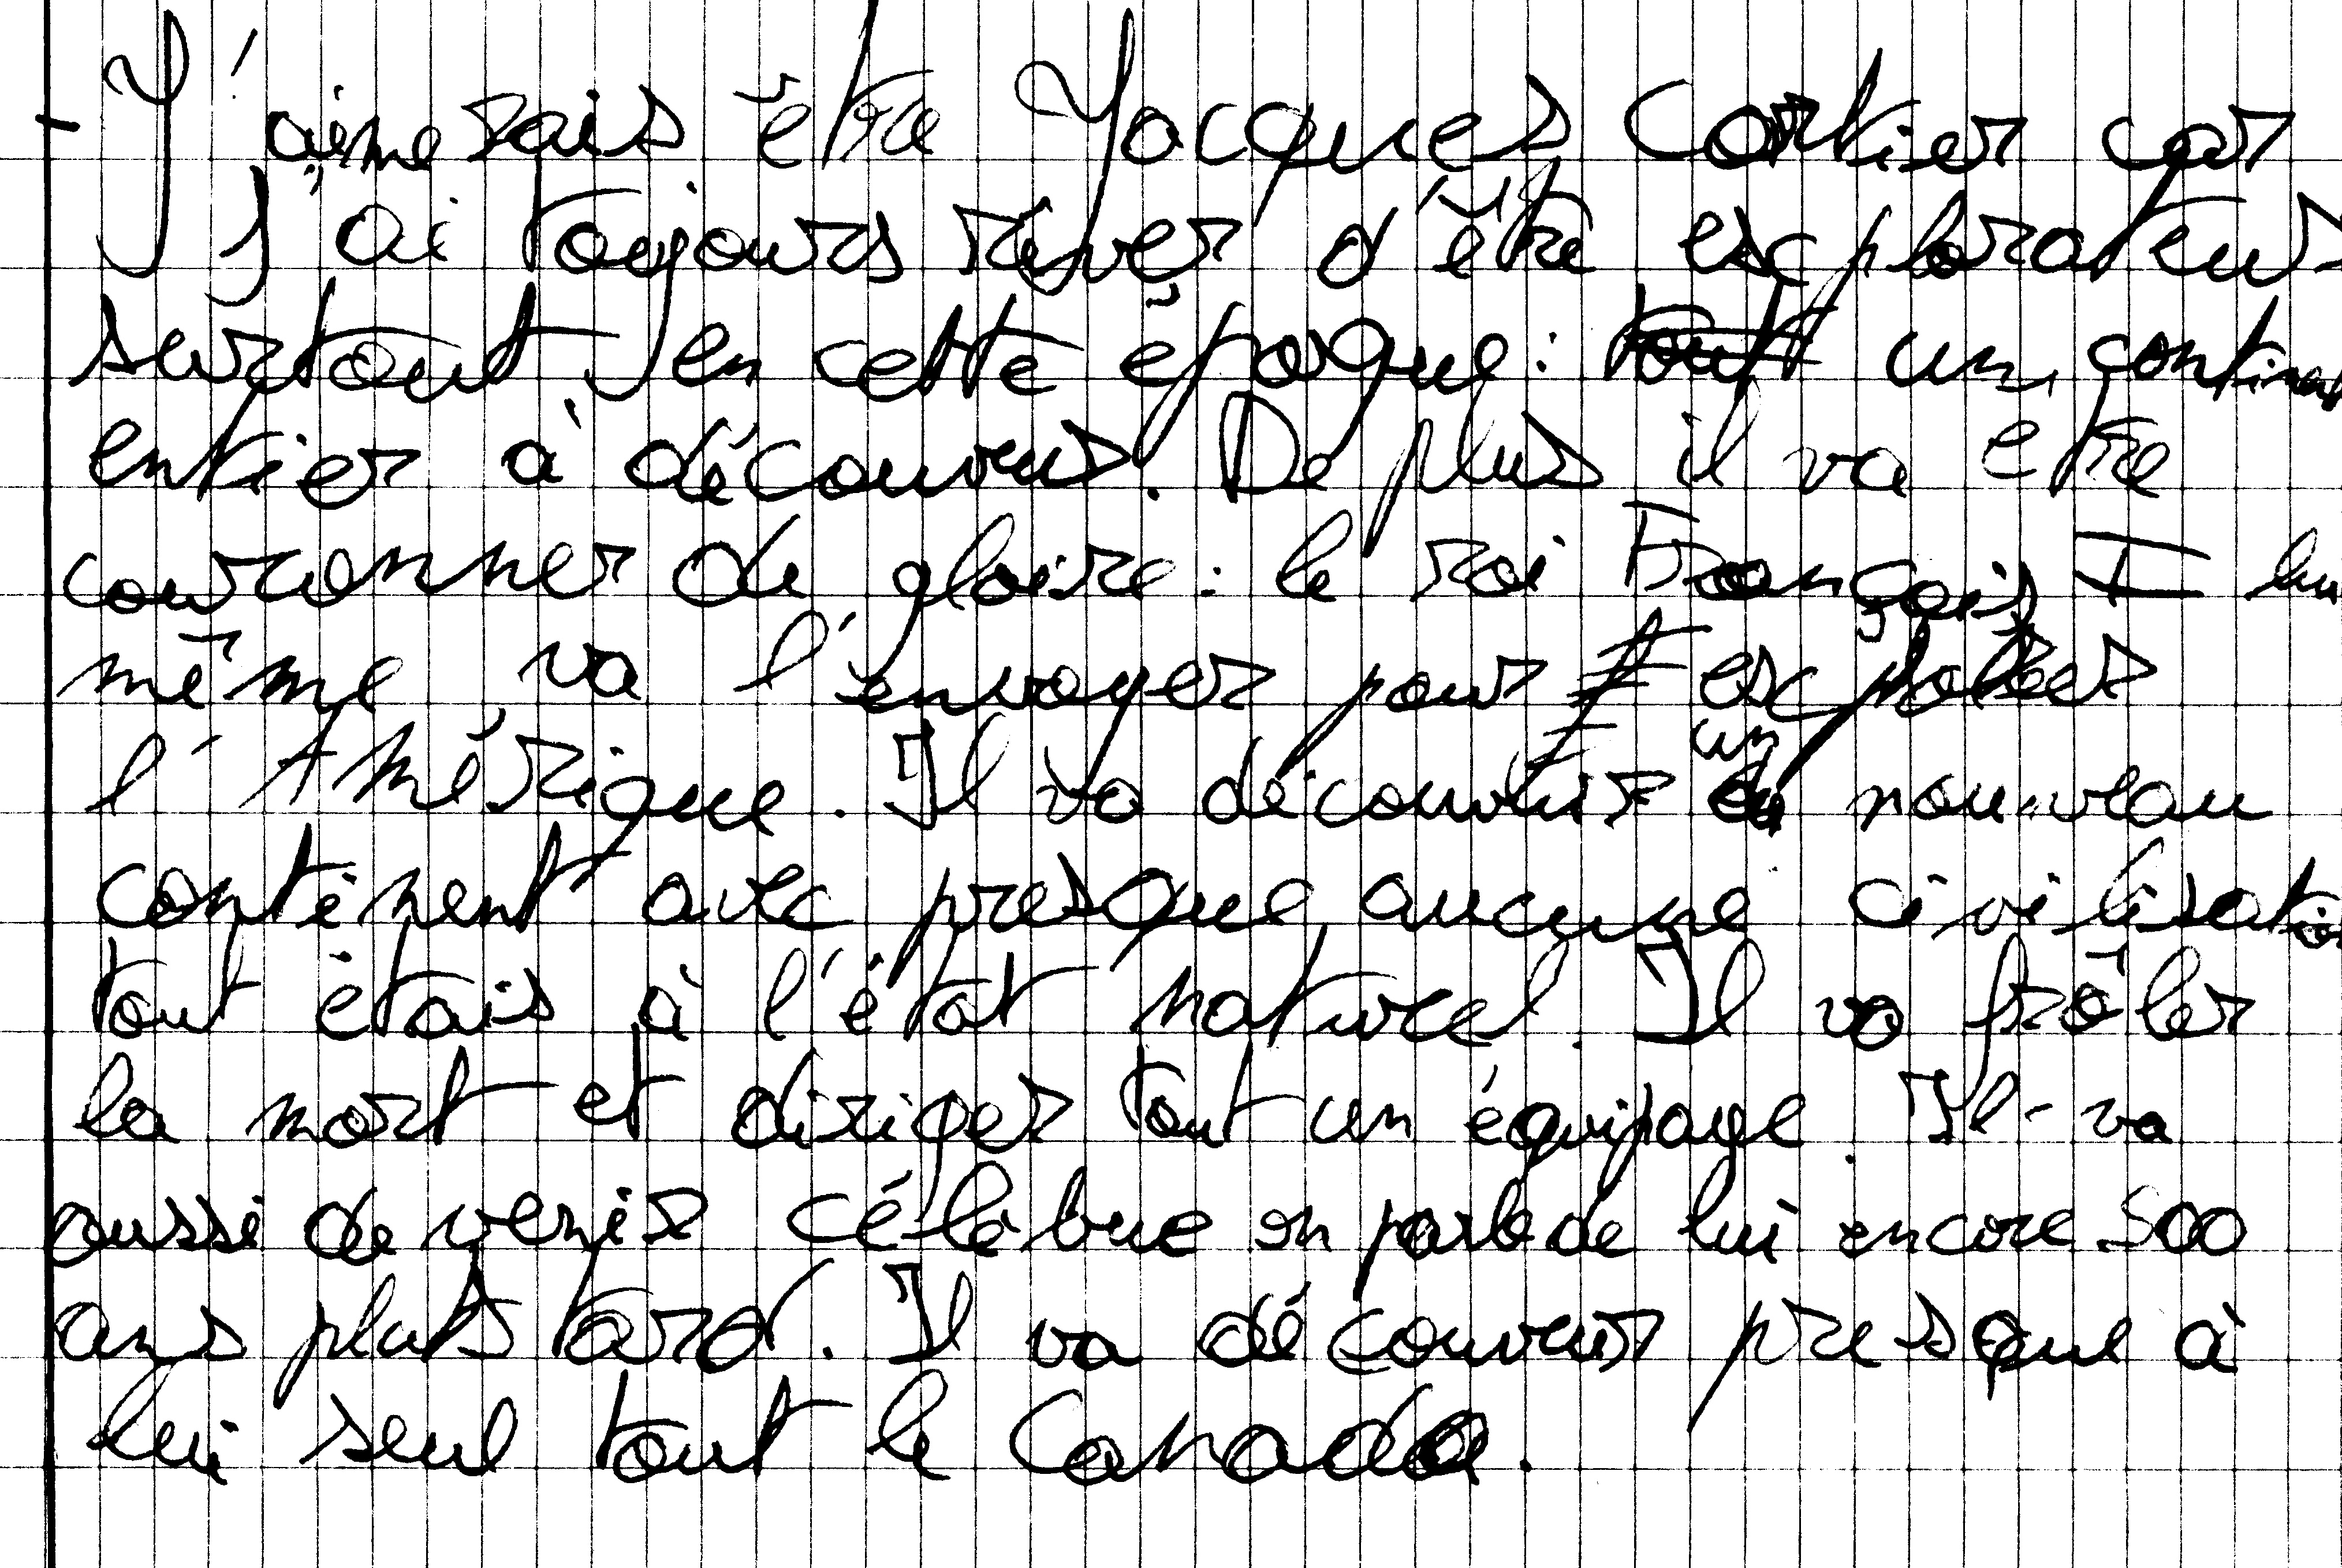 - J'aimerais être Jacques Cartier car
j'ai toujours rêver d'être explorateur
surtout en cette époque : tout un continent
entier à découvrir. De plus il va etre
couronner de gloire : le roi François I lui
même va l'envoyer pour explorer
l'Amérique. Il va découvrir un nouveau
continent avec presque aucune civilisation
tout étais à l'état naturel. Il va frôler
la mort et diriger tout un équipage. Il va
aussi devenir célèbre on parle de lui encore 500
ans plus tard. Il va découvrir presque à
lui seul tout le Canada.